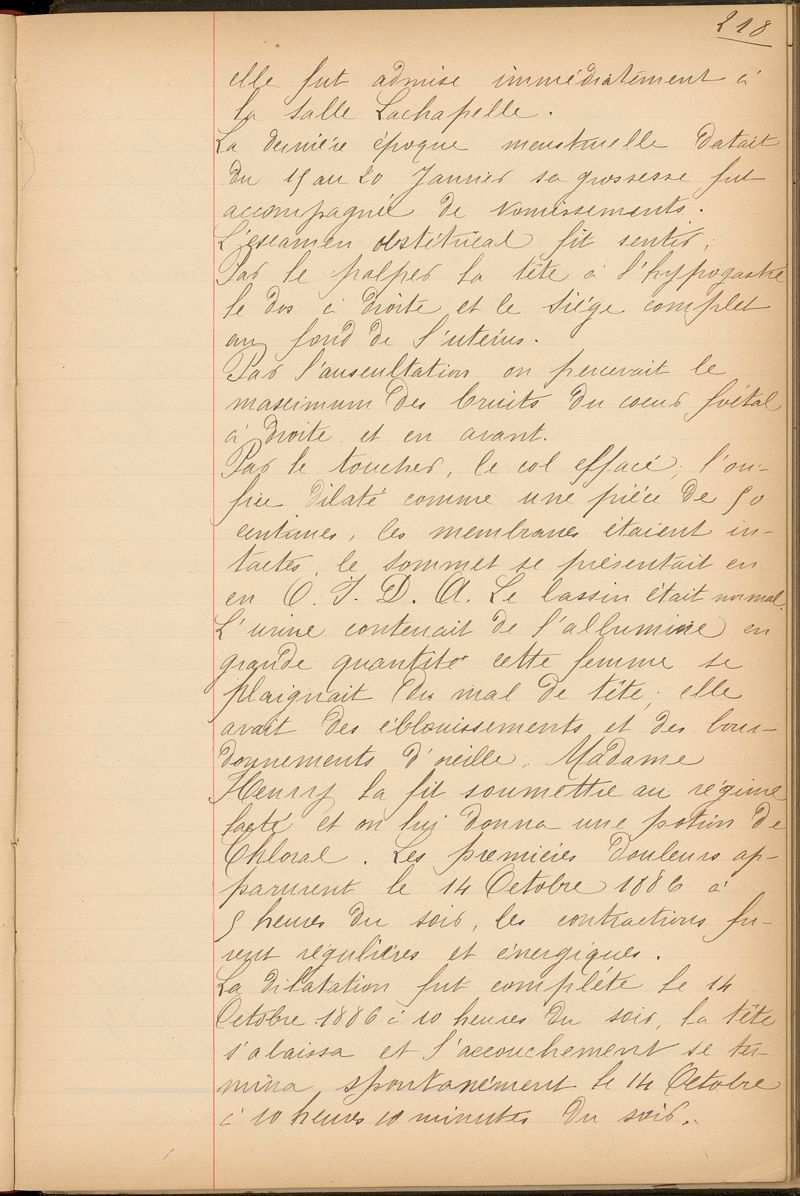 218
elle fut admise immédiatement à
la salle Lachapelle.
La dernière époque menstruelle datait
du 15 au 20 Janvier sa grossesse fut
accompagnée de vomissements.
L'éxamen obstétrical fit sentir;
Par le palper la tête à l'hypogastre
le dos à droite et le siége complet
au fond de l'utérus.
Par l'auscultation on percevait le
maximum des bruits du coeur foétal
à droite et en avant.
Par le toucher, le col effacé, l'ori-
fice dilaté comme une piéce de 50
centimes, les membranes étaient in-
tactes, le sommet se présentait en
en O. I. D. A. Le bassin était normal.
L'urine contenait de l'albumine en
grande quantité cette femme se
plaignait du mal de tête, elle
avait des éblouissements et des bour-
donnements d'oreille. Madame
Henry la fit soumettre au régime
lacté et on lui donna une potion de
Chloral. Les premières douleurs ap-
parurent le 14 Octobre 1886 à
5 heures du soir, les contractions fu-
rent régulières et énergiques.
La dilatation fut complète le 14
Octobre 1886 à 10 heures du soir, la tête
s'abaissa et l'accouchement se ter-
mina spontanément le 14 Octobre
à 10 heures 10 minutes du soir.